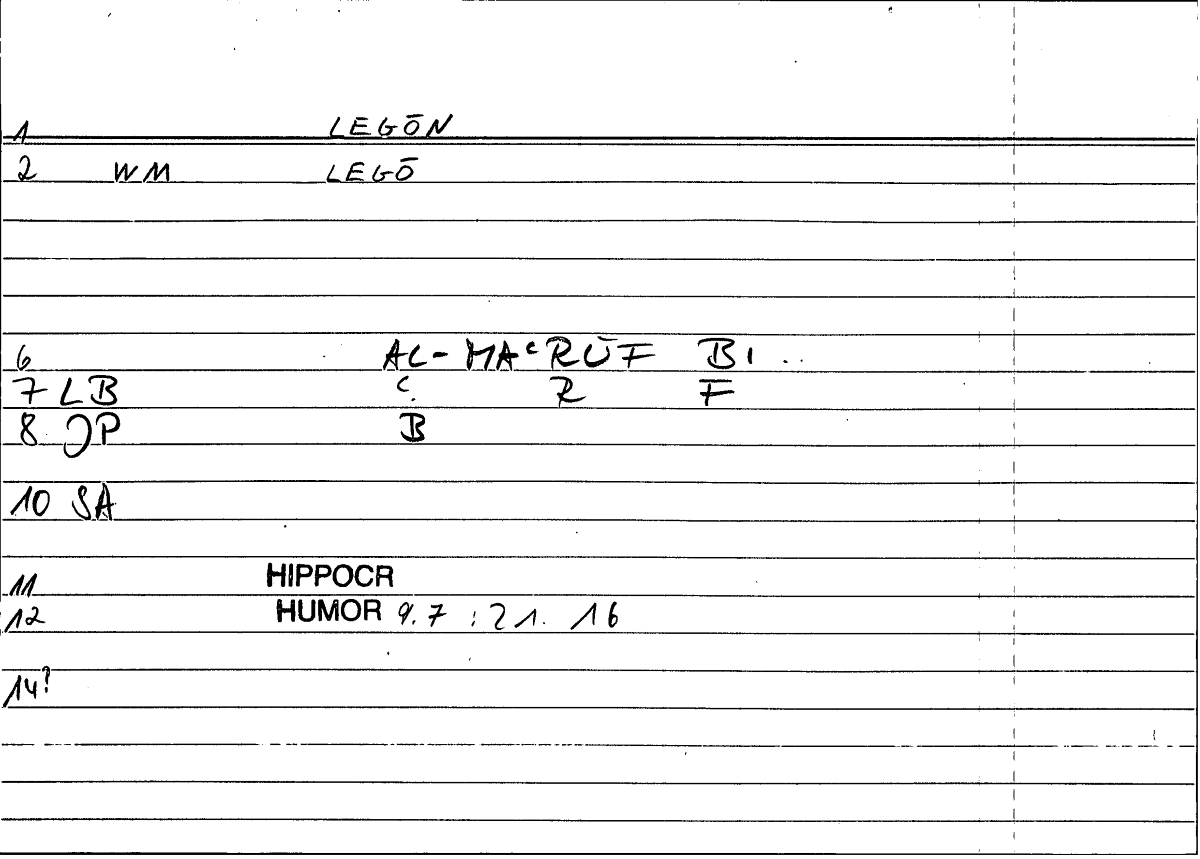 1 LEGŌN
2 WM LEGŌ
6 AL-MAʿRŪF BI ..
7 LB ʿ R F
8 JP B
10 SA
11 HIPPOCR
12 HUMOR 9.7 :21. 16
14?